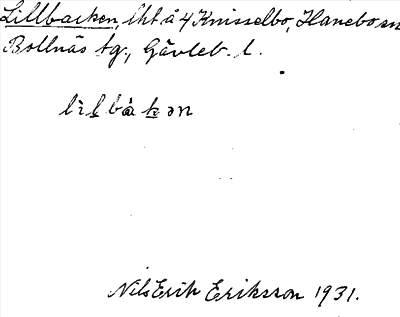 Lillbacken, lht å 4 Knisselbo, Hanebo sn
Bollnäs tg., Gävleb. l.
Nils Erik Eriksson 1931.